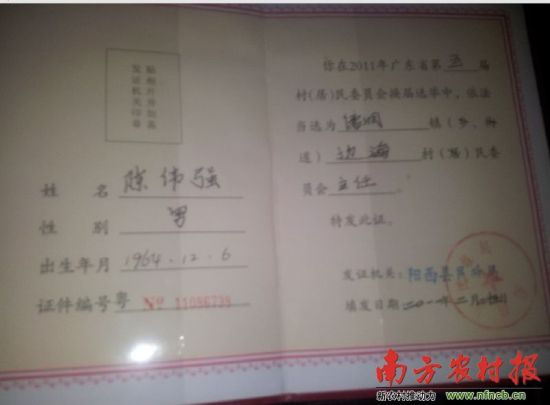 贴相片并加盖
发证机关印章
姓 名 陈伟强
性 别 男
出生年月 1964.12.6
证件编号粤 Nº 11096739
你在2011年广东省第五届
村(居)民委员会换届选举中,依法
当选为儒洞镇(乡、街
道)边海村(居)民委
员会主任。
特发此证。
发证机关:阳西县民政局
填发日期:二〇一一年二月
南方农村报
新农村推动力 www.nfncb.cn